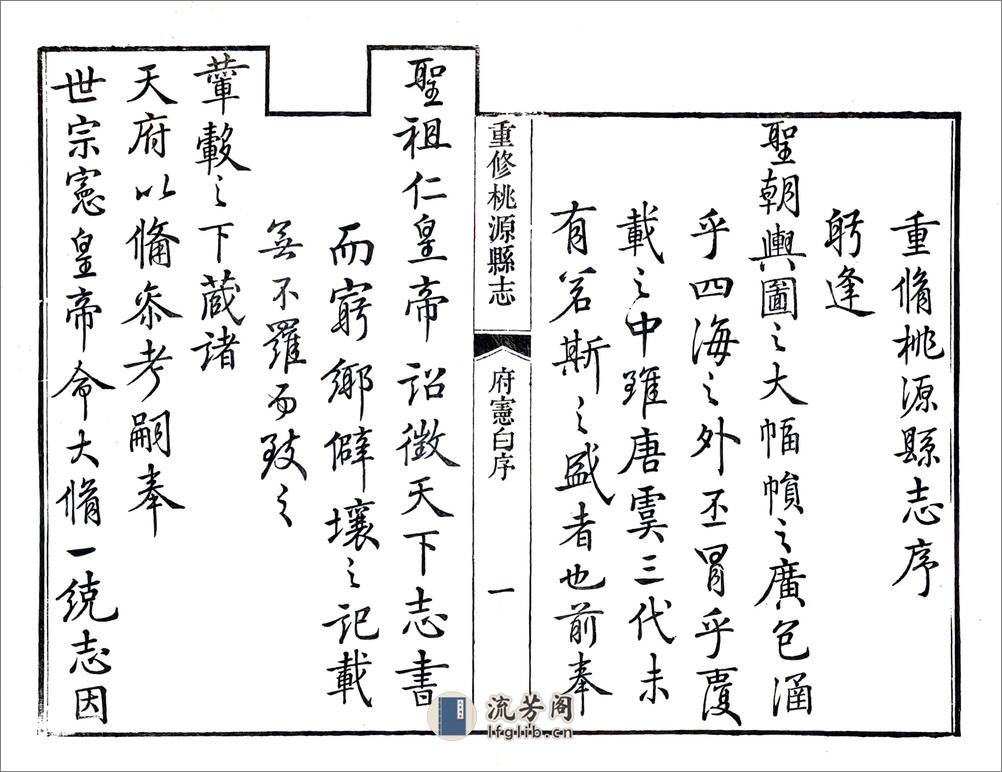 重脩桃源縣志序
躬逢
聖朝輿圖之大幅幀之廣包涵
乎四海之外丕冒乎覆
載之中雖唐虞三代未
有若斯之盛者也前奉
重修桃源縣志
府憲白序
一
聖祖仁皇帝詔徵天下志書
而窮鄉僻壤之記載
無不羅而致之
輦轂之下藏諸
天府以備叅考嗣奉
世宗憲皇帝命大脩一統志因
流芳阁
lfglib.cn